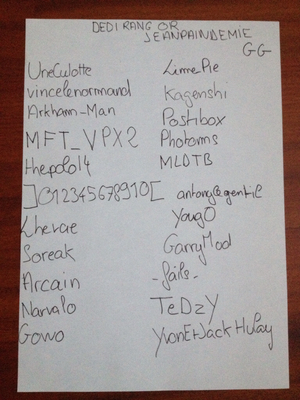 DEDI RANG OR
JEANPAINDEMIE
GG
UneCulotte
vincelenormand
Arkham-Man
MFT_VPX2
thepolo14
]012345678910[
Lherae
Soreak
Arcain
Narvalo
Gowo
LimePie
Kagenshi
Postibox
Photorms
MLDTB
YougO
GarryMod
-fails-
TeDzY